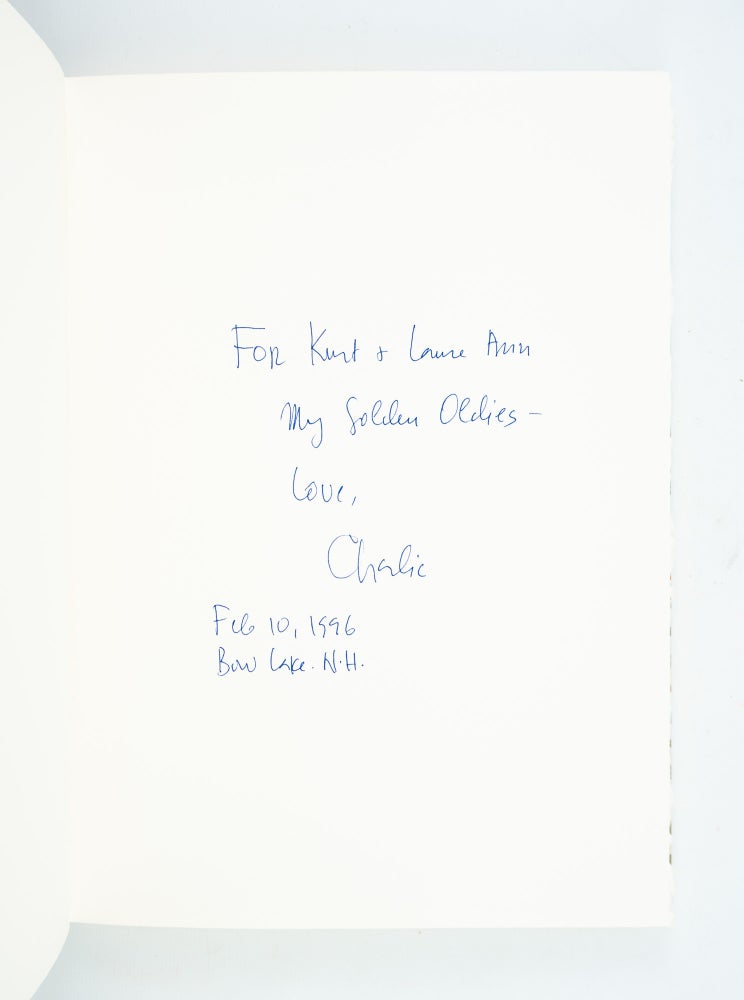 For Kurt + Laure Ann
My Golden Oldies –
Love,
Charlie
Feb 10, 1996
Bow Lake. N.H.